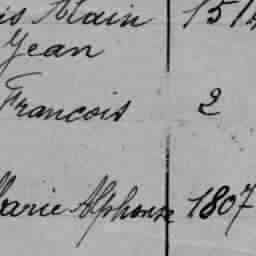 is Alain 151
Jean
Francois 2
Marie Alphonse 1807